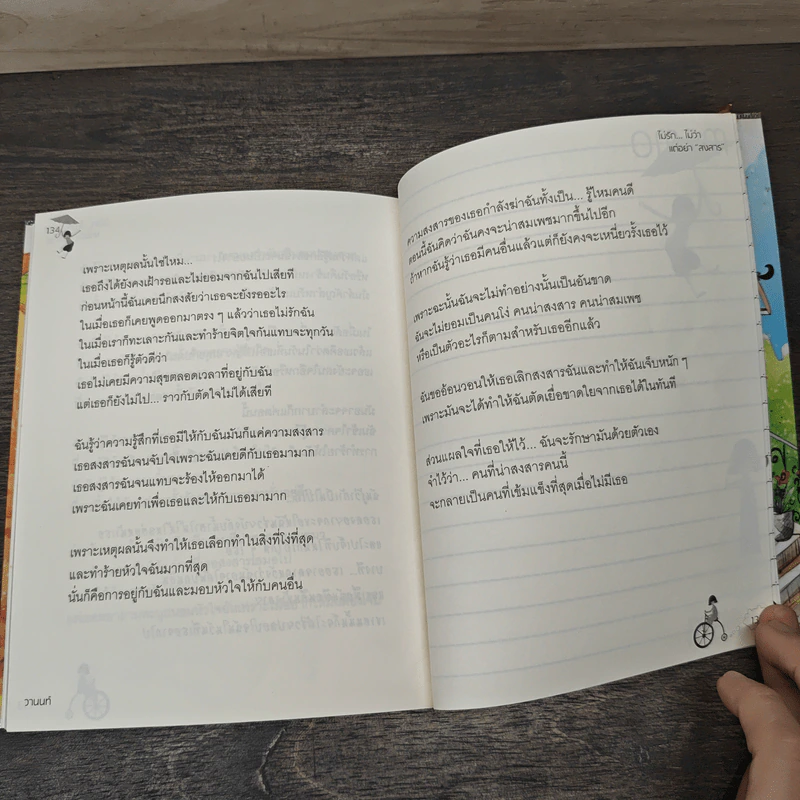 134
เพราะเหตุผลนั้นใช่ไหม...
เธอถึงได้ยังคงเฝ้ารอและไม่ยอมจากฉันไปเสียที
ก่อนหน้านี้ฉันเคยนึกสงสัยว่าเธอจะยังรออะไร
ในเมื่อเธอก็เคยพูดออกมาตรง ๆ แล้วว่าเธอไม่รักฉัน
ในเมื่อเราก็ทะเลาะกันและทำร้ายจิตใจกันแทบจะทุกวัน
ในเมื่อเธอก็รู้ตัวดีว่า
เธอไม่เคยมีความสุขตลอดเวลาที่อยู่กับฉัน
แต่เธอก็ยังไม่ไป... ราวกับตัดใจไม่ได้เสียที
ฉันรู้ว่าความรู้สึกที่เธอมีให้กับฉันมันก็แค่ความสงสาร
เธอสงสารฉันจนจับใจเพราะฉันเคยดีกับเธอมามาก
เธอสงสารฉันจนแทบจะร้องไห้ออกมาได้
เพราะฉันเคยทำเพื่อเธอและให้กับเธอมามาก
เพราะเหตุผลนั้นจึงทำให้เธอเลือกทำในสิ่งที่โง่ที่สุด
และทำร้ายหัวใจฉันมากที่สุด
นั่นก็คือการอยู่กับฉันและมอบหัวใจให้กับคนอื่น
วานนท์
ไม่รัก... ไม่ว่า
แต่อย่า "สงสาร"
ความสงสารของเธอกำลังฆ่าฉันทั้งเป็น... รู้ไหมคนดี
ตอนนี้ฉันคิดว่าฉันคงจะน่าสมเพชมากขึ้นไปอีก
ถ้าหากฉันรู้ว่าเธอมีคนอื่นแล้วแต่ก็ยังคงจะเหนี่ยวรั้งเธอไว้
เพราะฉะนั้นฉันจะไม่ทำอย่างนั้นเป็นอันขาด
ฉันจะไม่ยอมเป็นคนโง่ คนน่าสงสาร คนน่าสมเพช
หรือเป็นตัวอะไรก็ตามสำหรับเธออีกแล้ว
ฉันขออ้อนวอนให้เธอเลิกสงสารฉันและทำให้ฉันเจ็บหนัก ๆ
เพราะมันจะได้ทำให้ฉันตัดเยื่อขาดใยจากเธอได้ในทันที
ส่วนแผลใจที่เธอให้ไว้... ฉันจะรักษามันด้วยตัวเอง
จำไว้ว่า... คนที่น่าสงสารคนนี้
จะกลายเป็นคนที่เข้มแข็งที่สุดเมื่อไม่มีเธอ